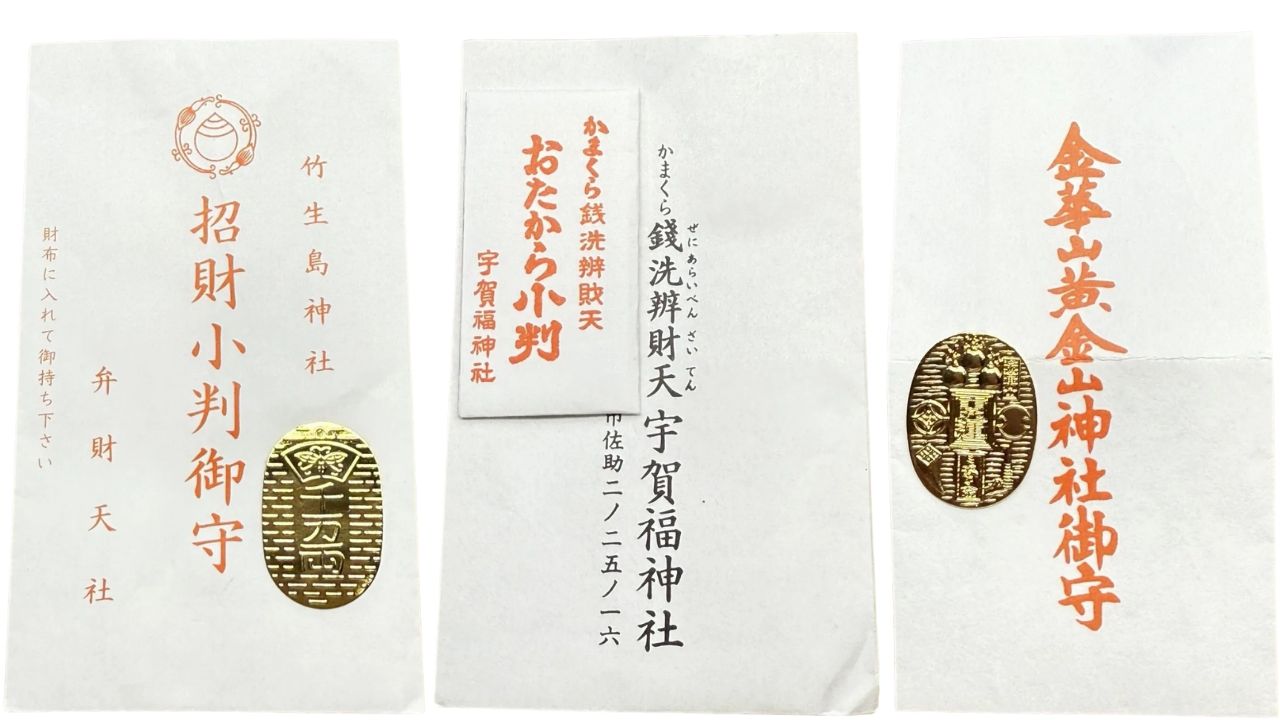 竹生島神社
招財小判御守
弁財天社
財布に入れて御持ち下さい
千万両
かまくら銭洗辨財天
おたから小判
宇賀福神社
かまくら錢洗辨財天宇賀福神社
ぜにあらいべんざいてん
市佐助二ノ二五ノ一六
金華山黄金山神社御守